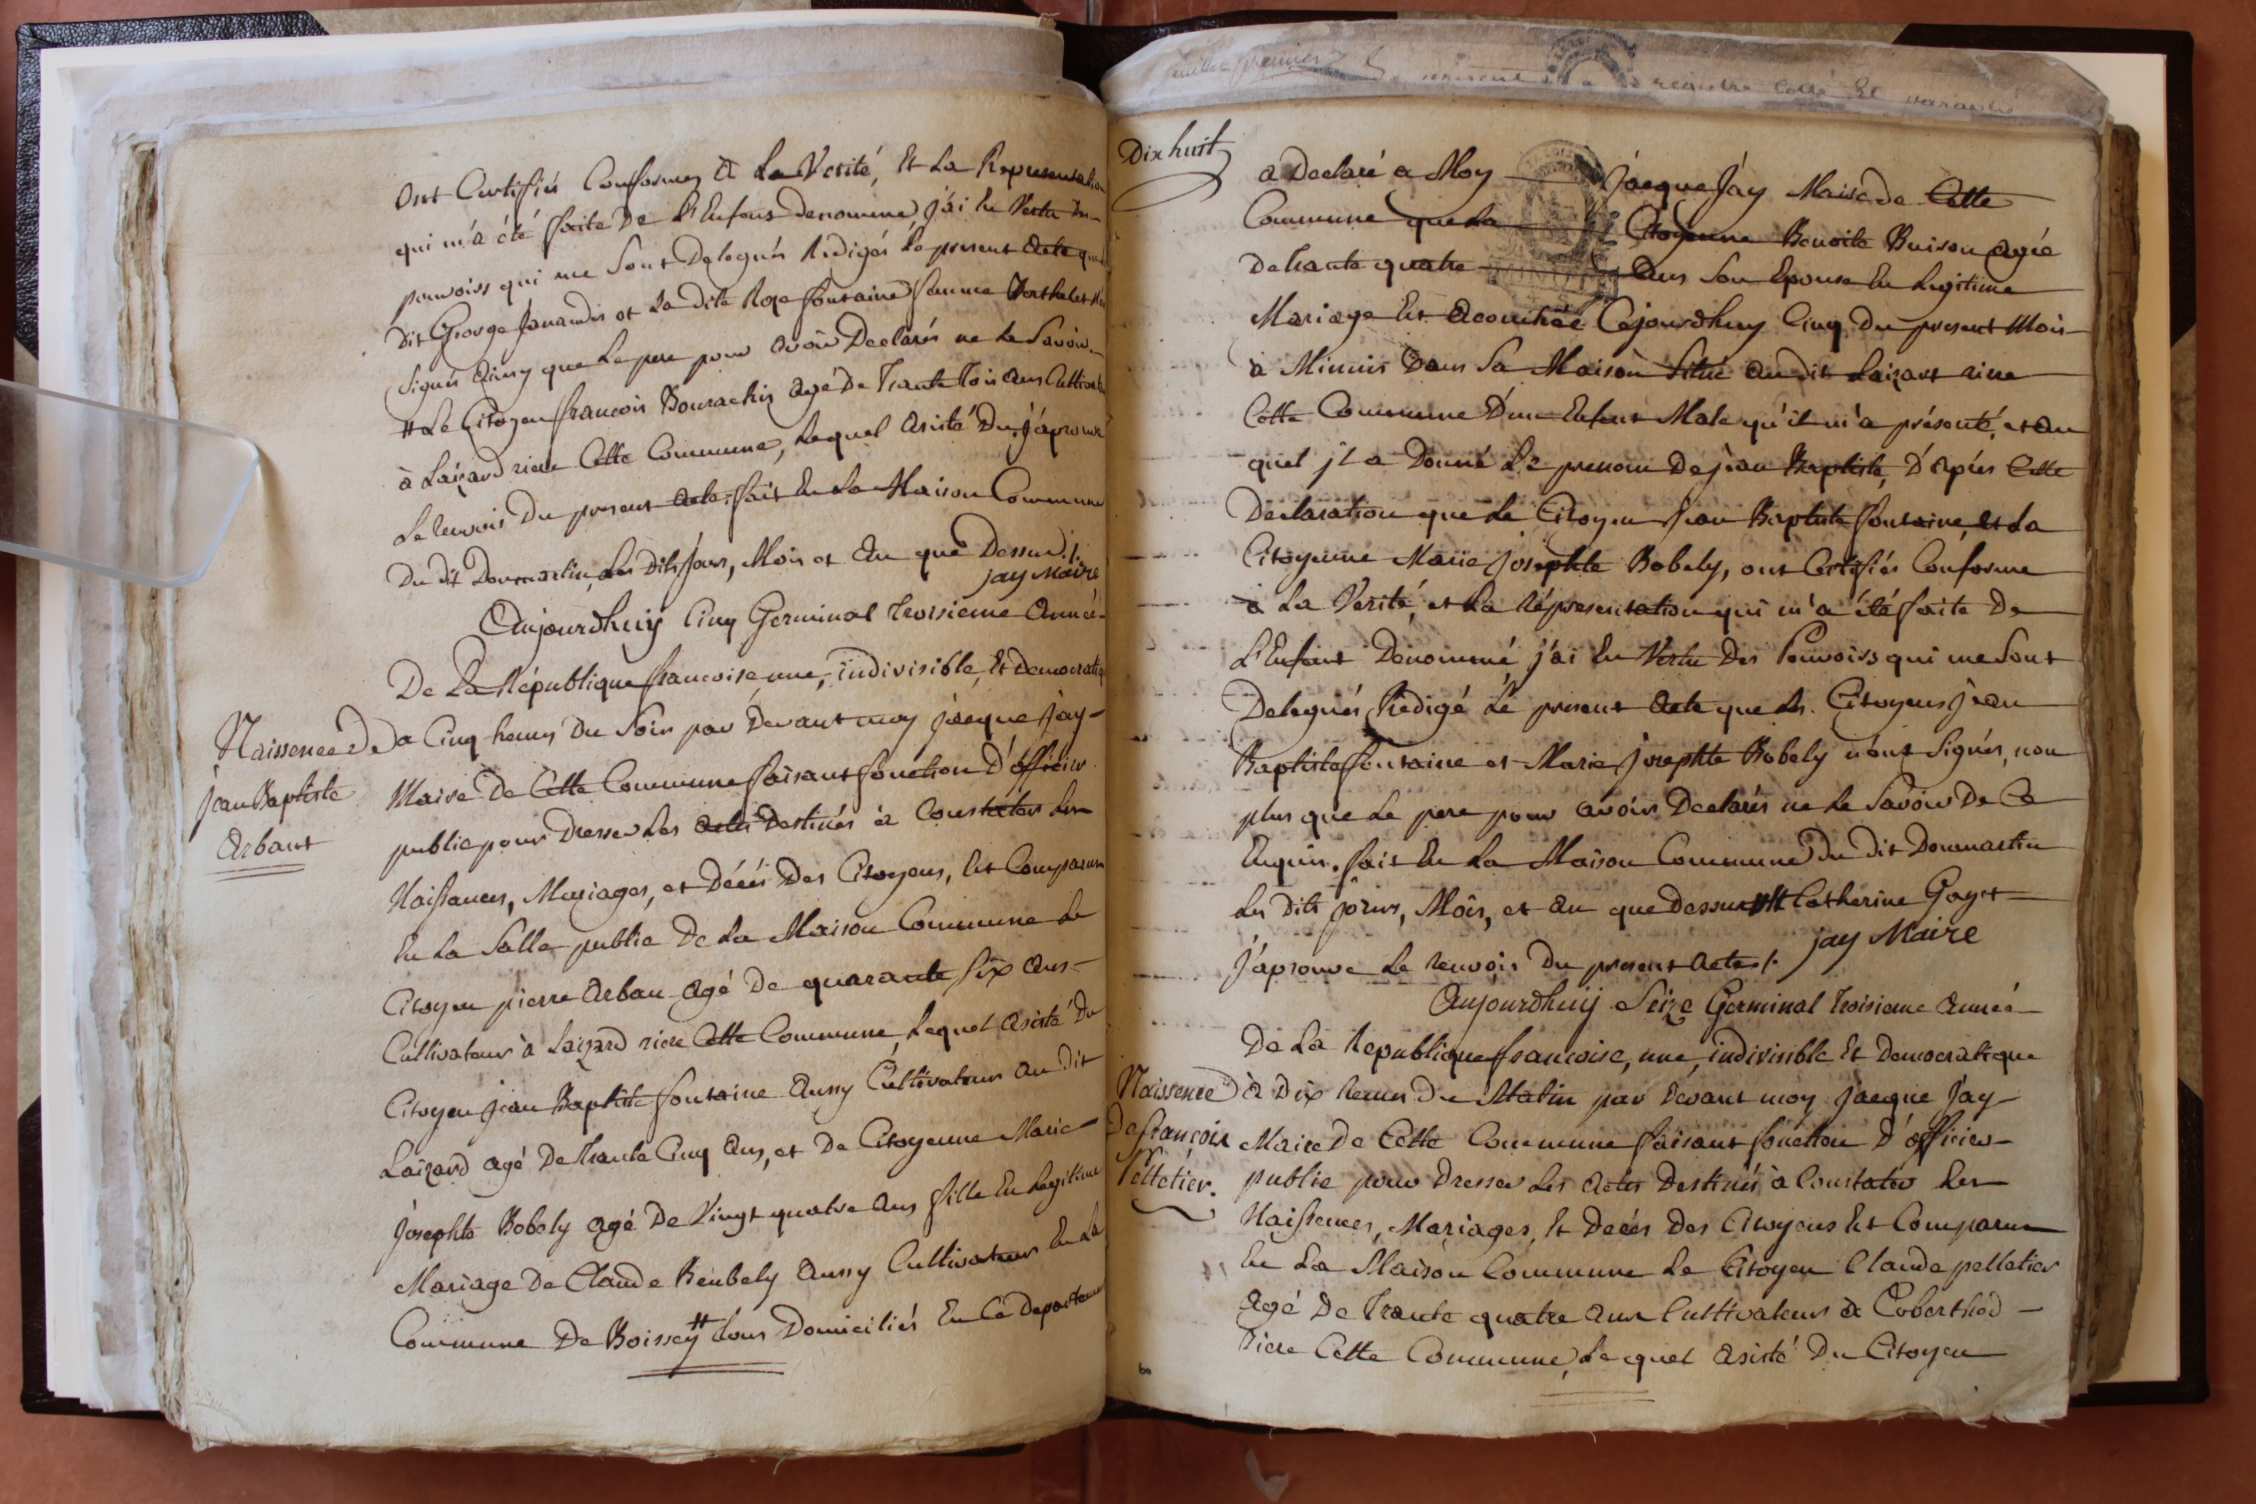 ont Certifiés Conformes à La Verité, Et La Representation
qui m'a été faite De L'Enfans denommé j'ai En Vertu Des
pouvoirs qui me sont Delegués Rédigés Le present Acte que
dit George Januardis et La dite Roze fontaine femme
signés ainsy que Le pere pour avoir Declarés ne Le Savoir
# Le Citoyen francois Bourachin agé De Trante Trois ans Cultivateur
à Laizard riere Cette Commune, Lequel Asisté Du, j'aprouve
Le renvois Du present acte, fait En La Maison Commune
Du dit Dommartin Les Dits Jour, Mois et An que Dessus ./.
jay Maire
Aujourdhuiy Cinq Germinal Troisieme Anné
De La République francoise, une, indivisible, Et Democratiq
Naissence De
jean Baptiste
Arbant
a Cinq heures Du Soir par Devant moy jacque Jay
Maire De Cette Commune faisant fonction D'officier
public pour Dresser Les actes Destinés à Constater Les
Naissances, Mariages, et Décés Des Citoyens, Est Comparue
En La Salle public De La Maison Commune Le
Citoyen pierre Arban agé De quarante Six ans
Cultivateur à Laizard riere Cette Commune, Lequel Asisté Du
Citoyen jean Baptiste fontaine Aussy Cultivateur Au dit
Laizard agé De Trante Cinq ans, et De Citoyenne Marie
josephte Bobely agé De Vingt quatre Ans fille En Legitime
Mariage De Claude Beubely Aussy Cultivateur En La
Commune De Boissey # tous Domiciliés En Cé Departem
Dix huit
a Declaré a Moy jacque Jay Maire De Cette
Commune que La Citoyenne Benoite Buison agée
De trante quatre Ans Son Epouse En Legitime
Mariage Est acouchée Cejourdhuy Cinq Du present Mois
à Minuis Dans Sa Maison Situé Au dit Laizart riere
Cette Commune D'un Enfant Male qu'il m'a présenté, et au
quel jl a Donné Le prenom De jean Baptiste, D'apiés Cette
Declaration que Le Citoyen jean Baptiste fontaine, et La
Citoyenne Marie josephte Bobely, ont Certifiés Conforme
à La Verité, et La répresentation qui m'a été faite De
L'Enfant Denommé j'ai En Vertu Des Pouvoirs qui me Sont
Delegués Rédigé Le present Acte que Les Citoyens jean
Baptiste fontaine et Marie josephte Bobely n'ont Signés, non
plus que Le pere pour avoir Declarés ne Le Savoir De Ce
Enquis. fait En La Maison Commune Du dit Dommartin
Les Dits jours, Mois, et An que Dessus # Catherine Goyet
j'aprouve Le renvois Du present Acte ./. jay Maire
Aujourdhuiy Seize Germinal Troisieme Année
De La Republique francoise, une, indivisible Et Democratique
Naissence
De françois
Pelletier.
à Dix heures Du Matin par Devant moy jacque Jay
Maire De Cette Commune faisant fonction D'officier
public pour Dresser Les actes Destinés à Constater Les
Naissences, Mariages, Et Decés Des Citoyens Est Comparue
En La Maison Commune Le Citoyen Claude pelletier
agé De Trante quatre ans Cultivateur à Coberthod
riere Cette Commune, Le quel Asisté Du Citoyen